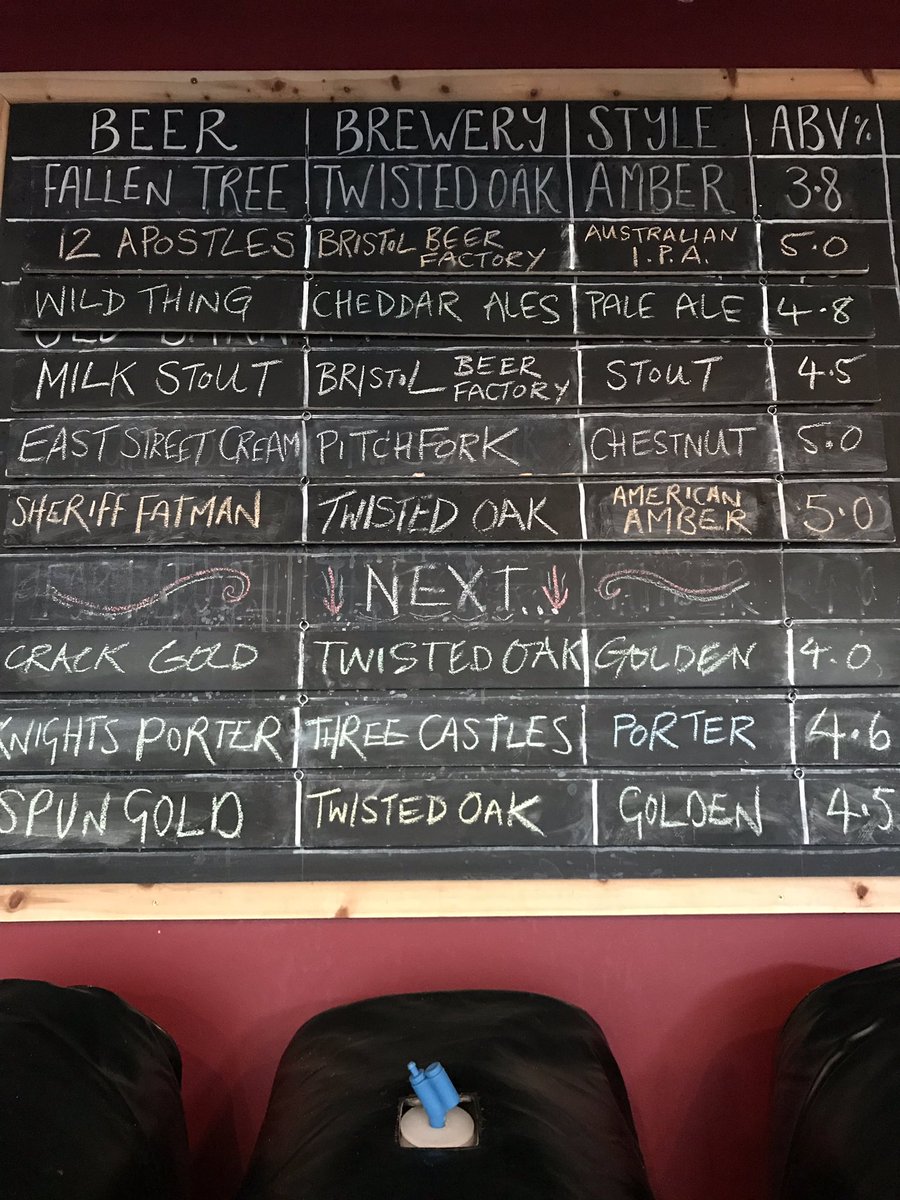 BEER BREWERY STYLE ABV%
FALLEN TREE TWISTED OAK AMBER 3.8
12 APOSTLES BRISTOL BEER FACTORY AUSTRALIAN I.P.A. 5.0
WILD THING CHEDDAR ALES PALE ALE 4.8
MILK STOUT BRISTOL BEER FACTORY STOUT 4.5
EAST STREET CREAM PITCHFORK CHESTNUT 5.0
SHERIFF FATMAN TWISTED OAK AMERICAN AMBER 5.0
NEXT...
CRACK GOLD TWISTED OAK GOLDEN 4.0
KNIGHTS PORTER THREE CASTLES PORTER 4.6
SPUN GOLD TWISTED OAK GOLDEN 4.5